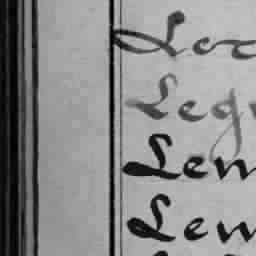 Loc
Legr
Lem
Lem